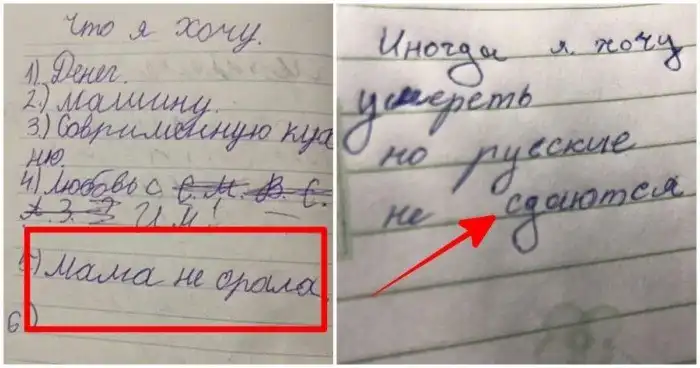 Что я хочу.
1) Денег.
2.) машину.
3.) Соврименную кух
ню.
4) любовь с С. М. В. С.
А. З. Э И М!
5) Мама не орала.
6)
Иногда я хочу
умереть
но русские
не сдаются